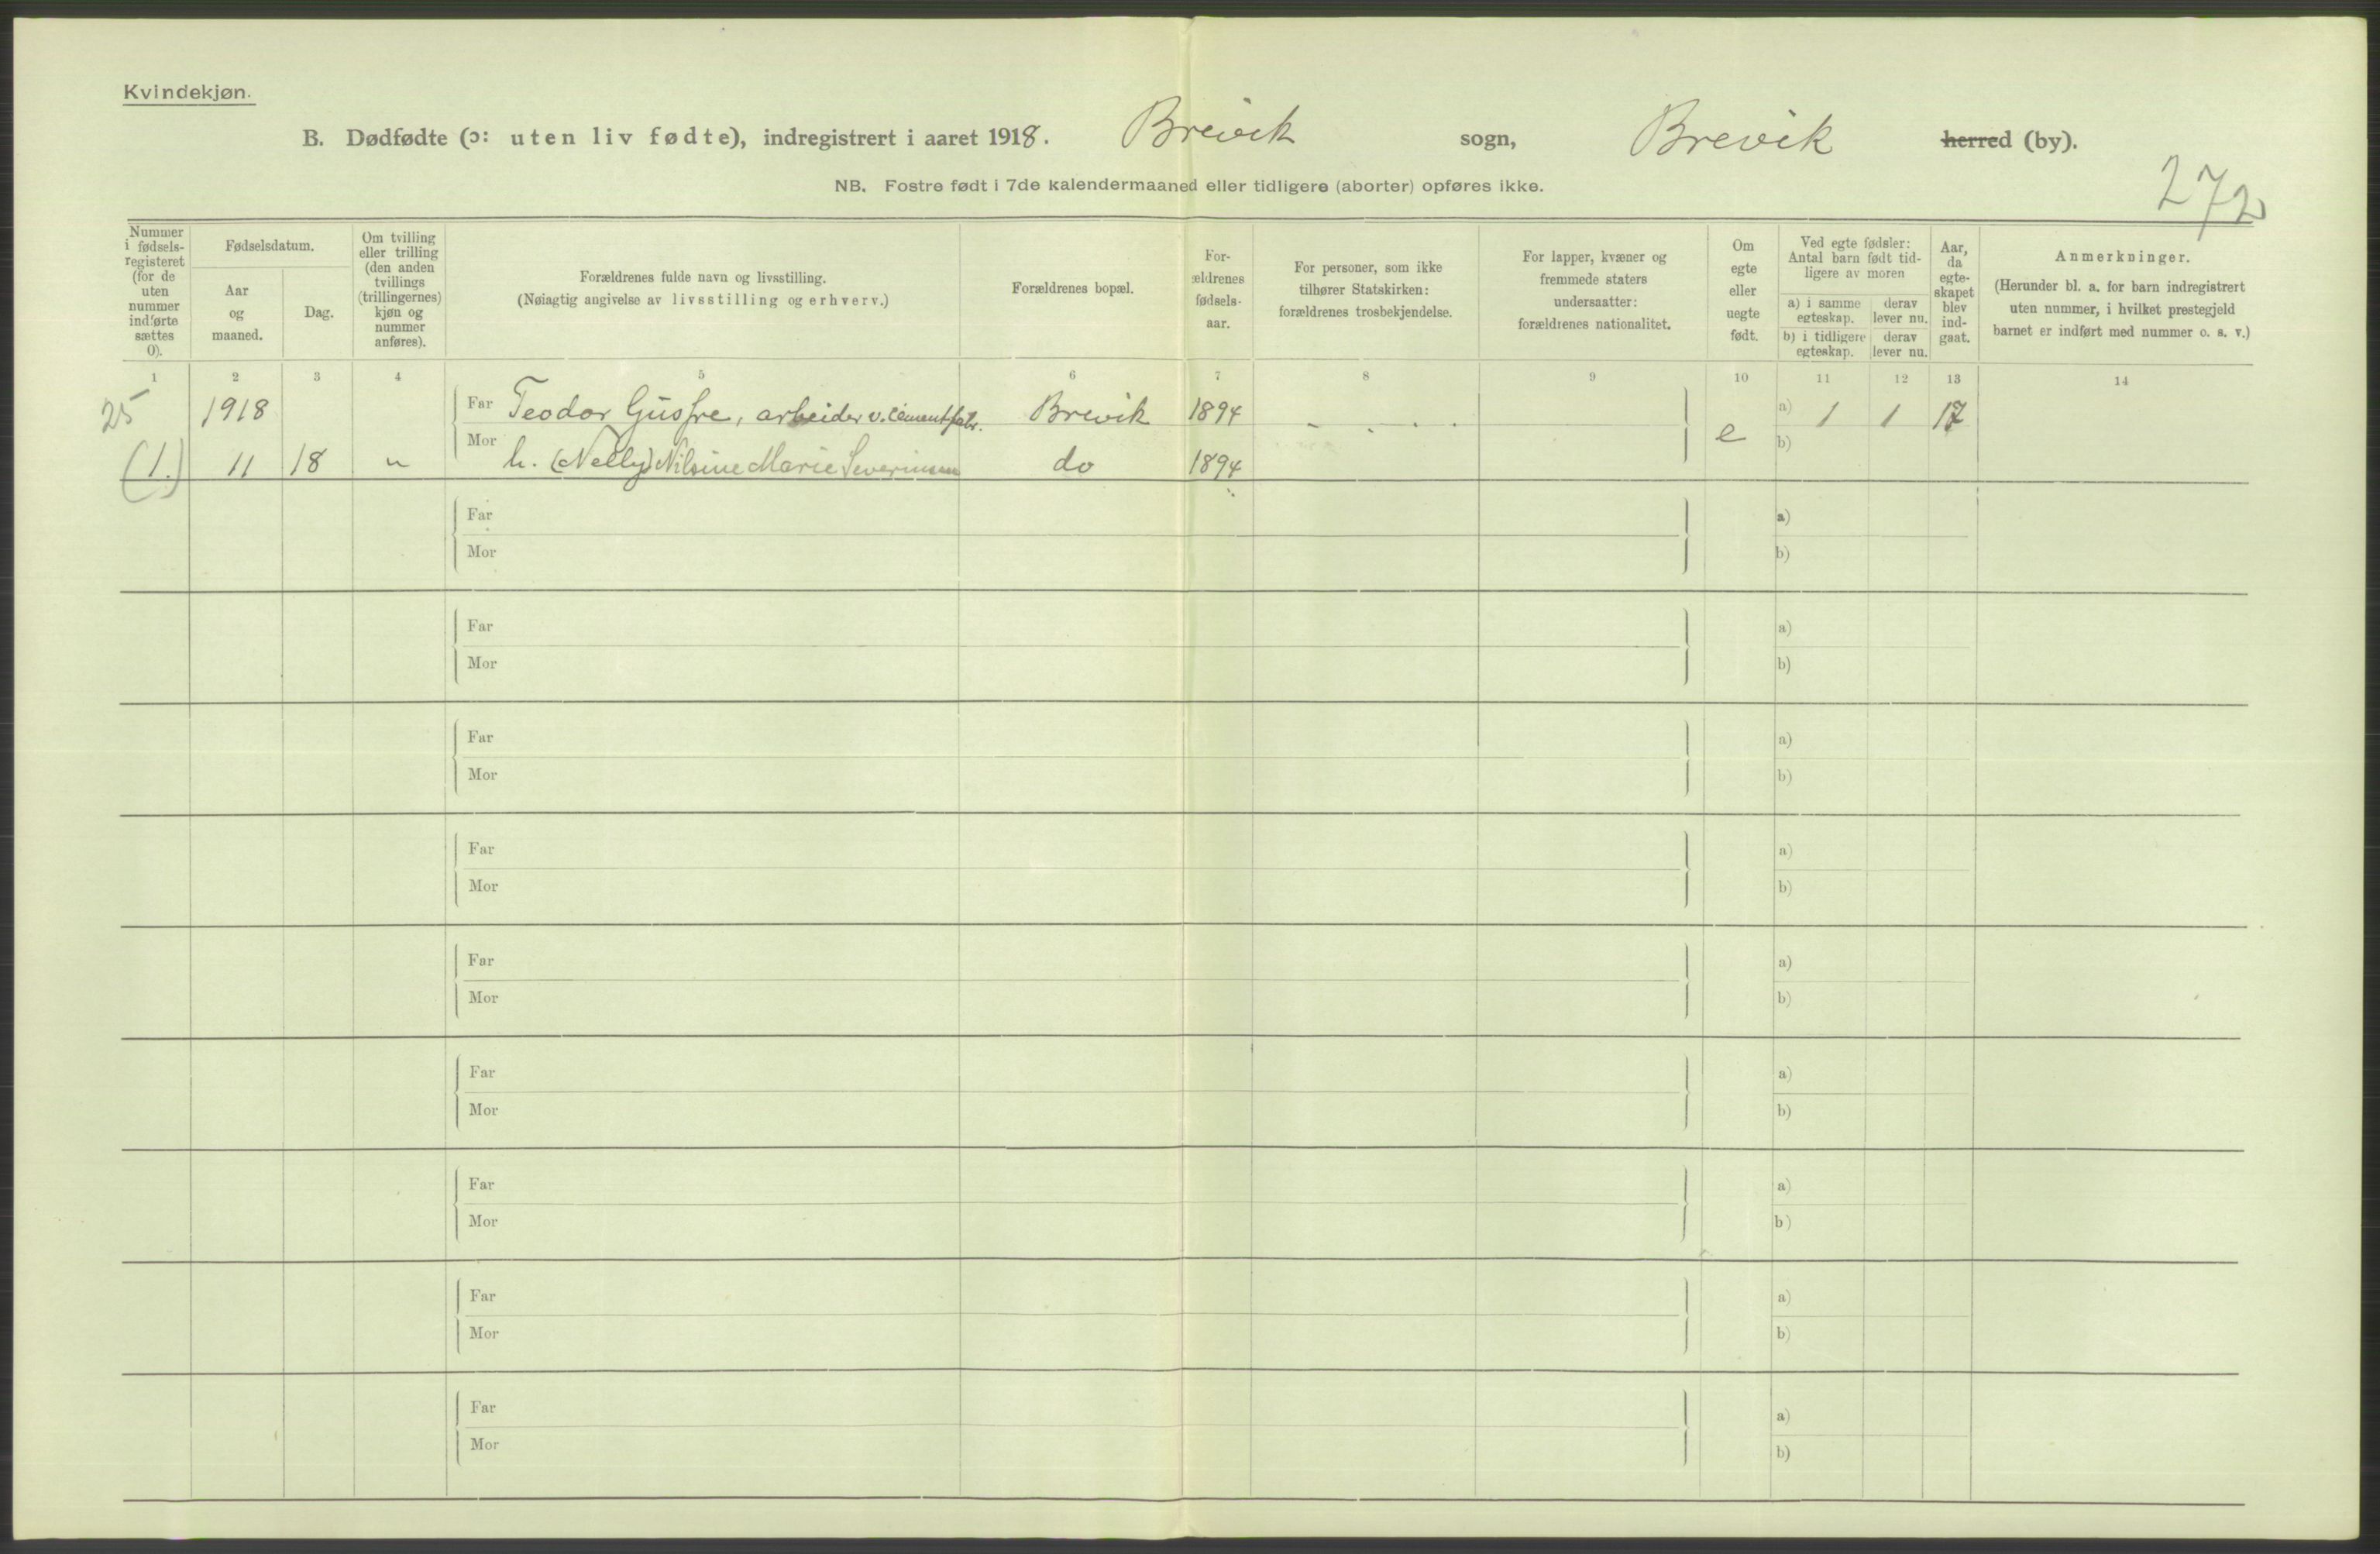 Kvindekjøn.
B. Dødfødte (ɔ: uten liv fødte), indregistrert i aaret 1918. Brevik sogn, Brevik herred (by).
NB. Fostre født i 7de kalendermaaned eller tidligere (aborter) opføres ikke.
272
Nummer i fødsels-registeret (for de uten nummer indførte sættes 0).
Fødselsdatum.
Aar og maaned.
Dag.
Om tvilling eller trilling (den anden tvillings (trillingernes) kjøn og nummer anføres).
Forældrenes fulde navn og livsstilling.
(Nøiagtig angivelse av livsstilling og erhverv.)
Forældrenes bopæl.
For-ældrenes fødsels-aar.
For personer, som ikke tilhører Statskirken: forældrenes trosbekjendelse.
For lapper, kvæner og fremmede staters undersaatter: forældrenes nationalitet.
Om egte eller uegte født.
Ved egte fødsler: Antal barn født tid-ligere av moren
a) i samme egteskap.
derav lever nu.
b) i tidligere egteskap.
derav lever nu.
Aar, da egte-skapet blev ind-gaat.
Anmerkninger.
(Herunder bl. a. for barn indregistrert uten nummer, i hvilket prestegjeld barnet er indført med nummer o. s. v.)
1 2 3 4 5 6 7 8 9 10 11 12 13 14
25 1918 Far Teodor Gusfre, arbeider v. cementfabr. Brevik 1894 - . . . a) 1 1 17
(1.) 11 18 " Mor h. (Nelly) Nilsine Marie Severinsen do 1894 e b)
Far a)
Mor b)
Far a)
Mor b)
Far a)
Mor b)
Far a)
Mor b)
Far a)
Mor b)
Far a)
Mor b)
Far a)
Mor b)
Far a)
Mor b)
Far a)
Mor b)